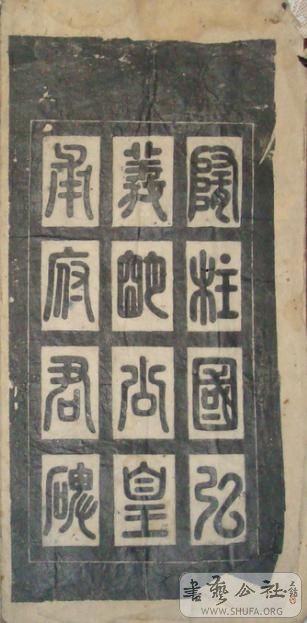 隋柱國弘
義明公皇
甫府君碑
書藝公社
WWW.SHUFA.ORG